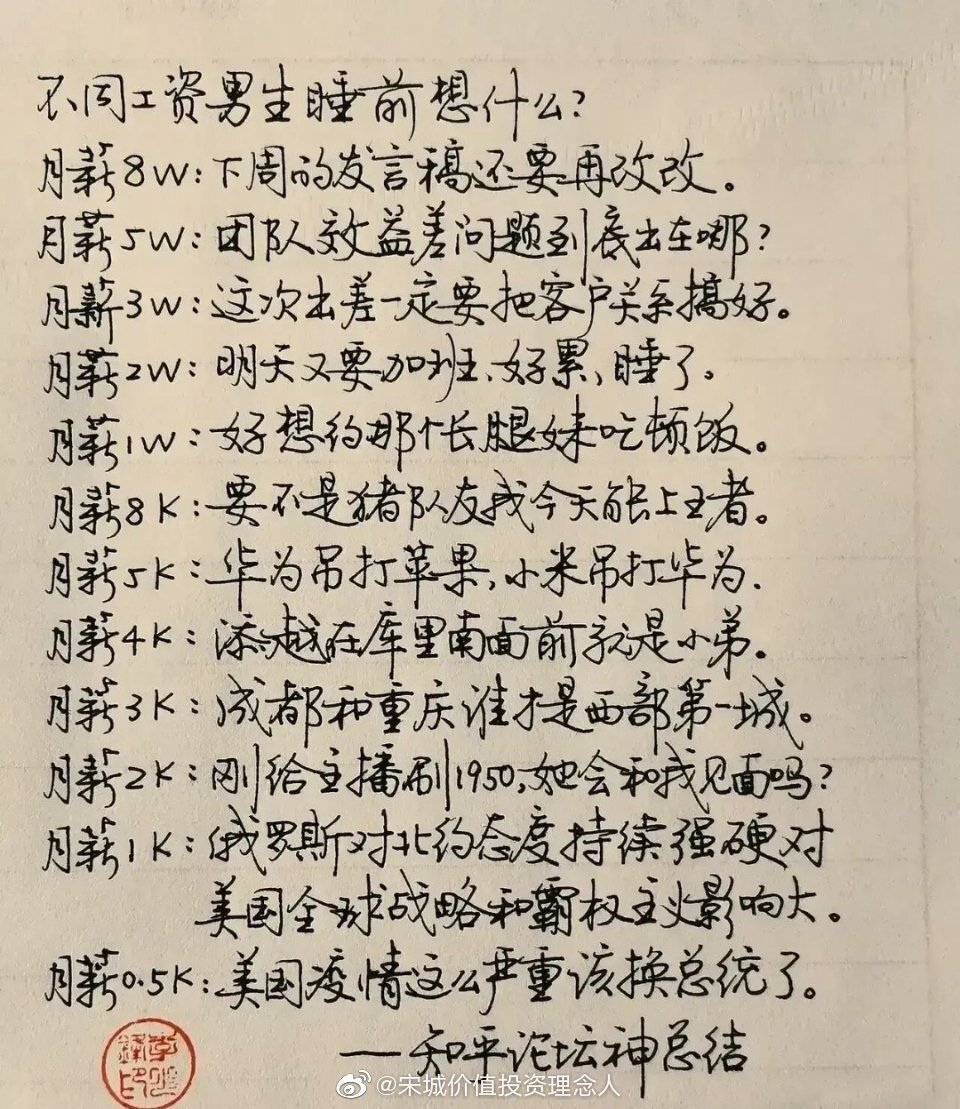 不同工资男生睡前想什么?
月薪8W:下周的发言稿还要再改改。
月薪5W:团队效益差问题到底出在哪?
月薪3W:这次出差一定要把客户关系搞好。
月薪2W:明天又要加班、好累,睡了.
月薪1W:好想约那个长腿妹吃顿饭。
月薪8K:要不是猪队友我今天能上王者。
月薪5K:华为吊打苹果,小米吊打华为.
月薪4K:添越在库里南面前就是小弟。
月薪3K:成都和重庆谁才是西部第一城。
月薪2K:刚给主播刷1950,她会和我见面吗?
月薪1K:俄罗斯对北约态度持续强硬对
美国全球战略和霸权主义影响大。
月薪0.5K:美国疫情这么严重该换总统了。
——知乎论坛神总结
@宋城价值投资理念人